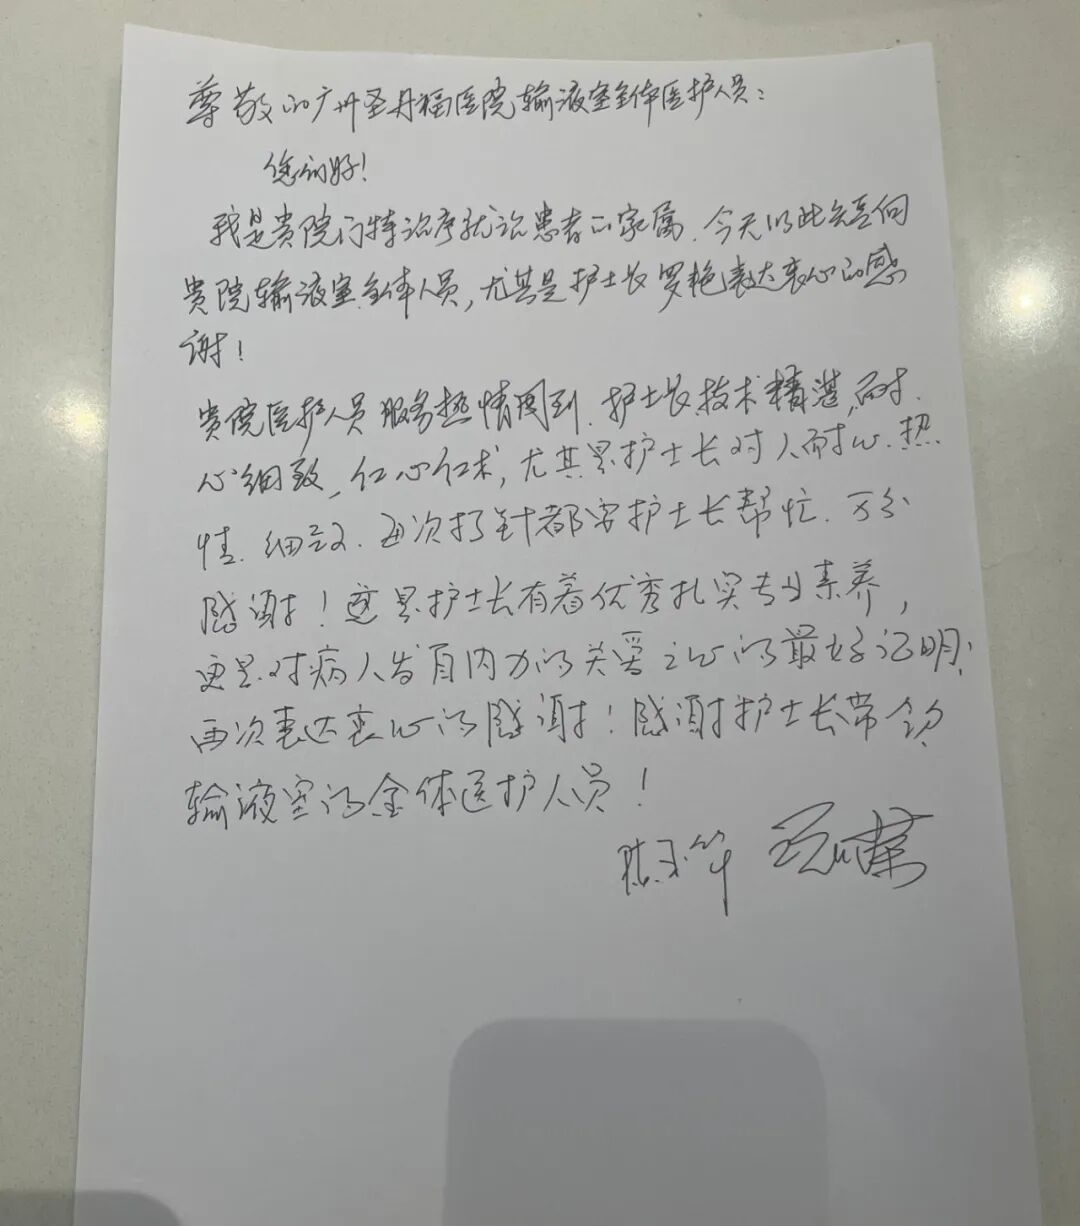 尊敬的广州圣丹福医院输液室全体医护人员：
您们好！
我是贵院门特诊序就诊患者的家属，今天以此向
贵院输液室全体人员，尤其是护士长罗艳表达衷心的感
谢！
贵院医护人员服务热情周到，护士长技术精湛，耐
心细致，仁心仁术，尤其是护士长对人耐心、热
情、细致，每次打针都害护士长帮忙，万分
感谢！这是护士长有着优秀扎实专业素养，
更是对病人发自内力的关爱之心的最好证明；
再次表达衷心的感谢！感谢护士长带领
输液室的全体医护人员！